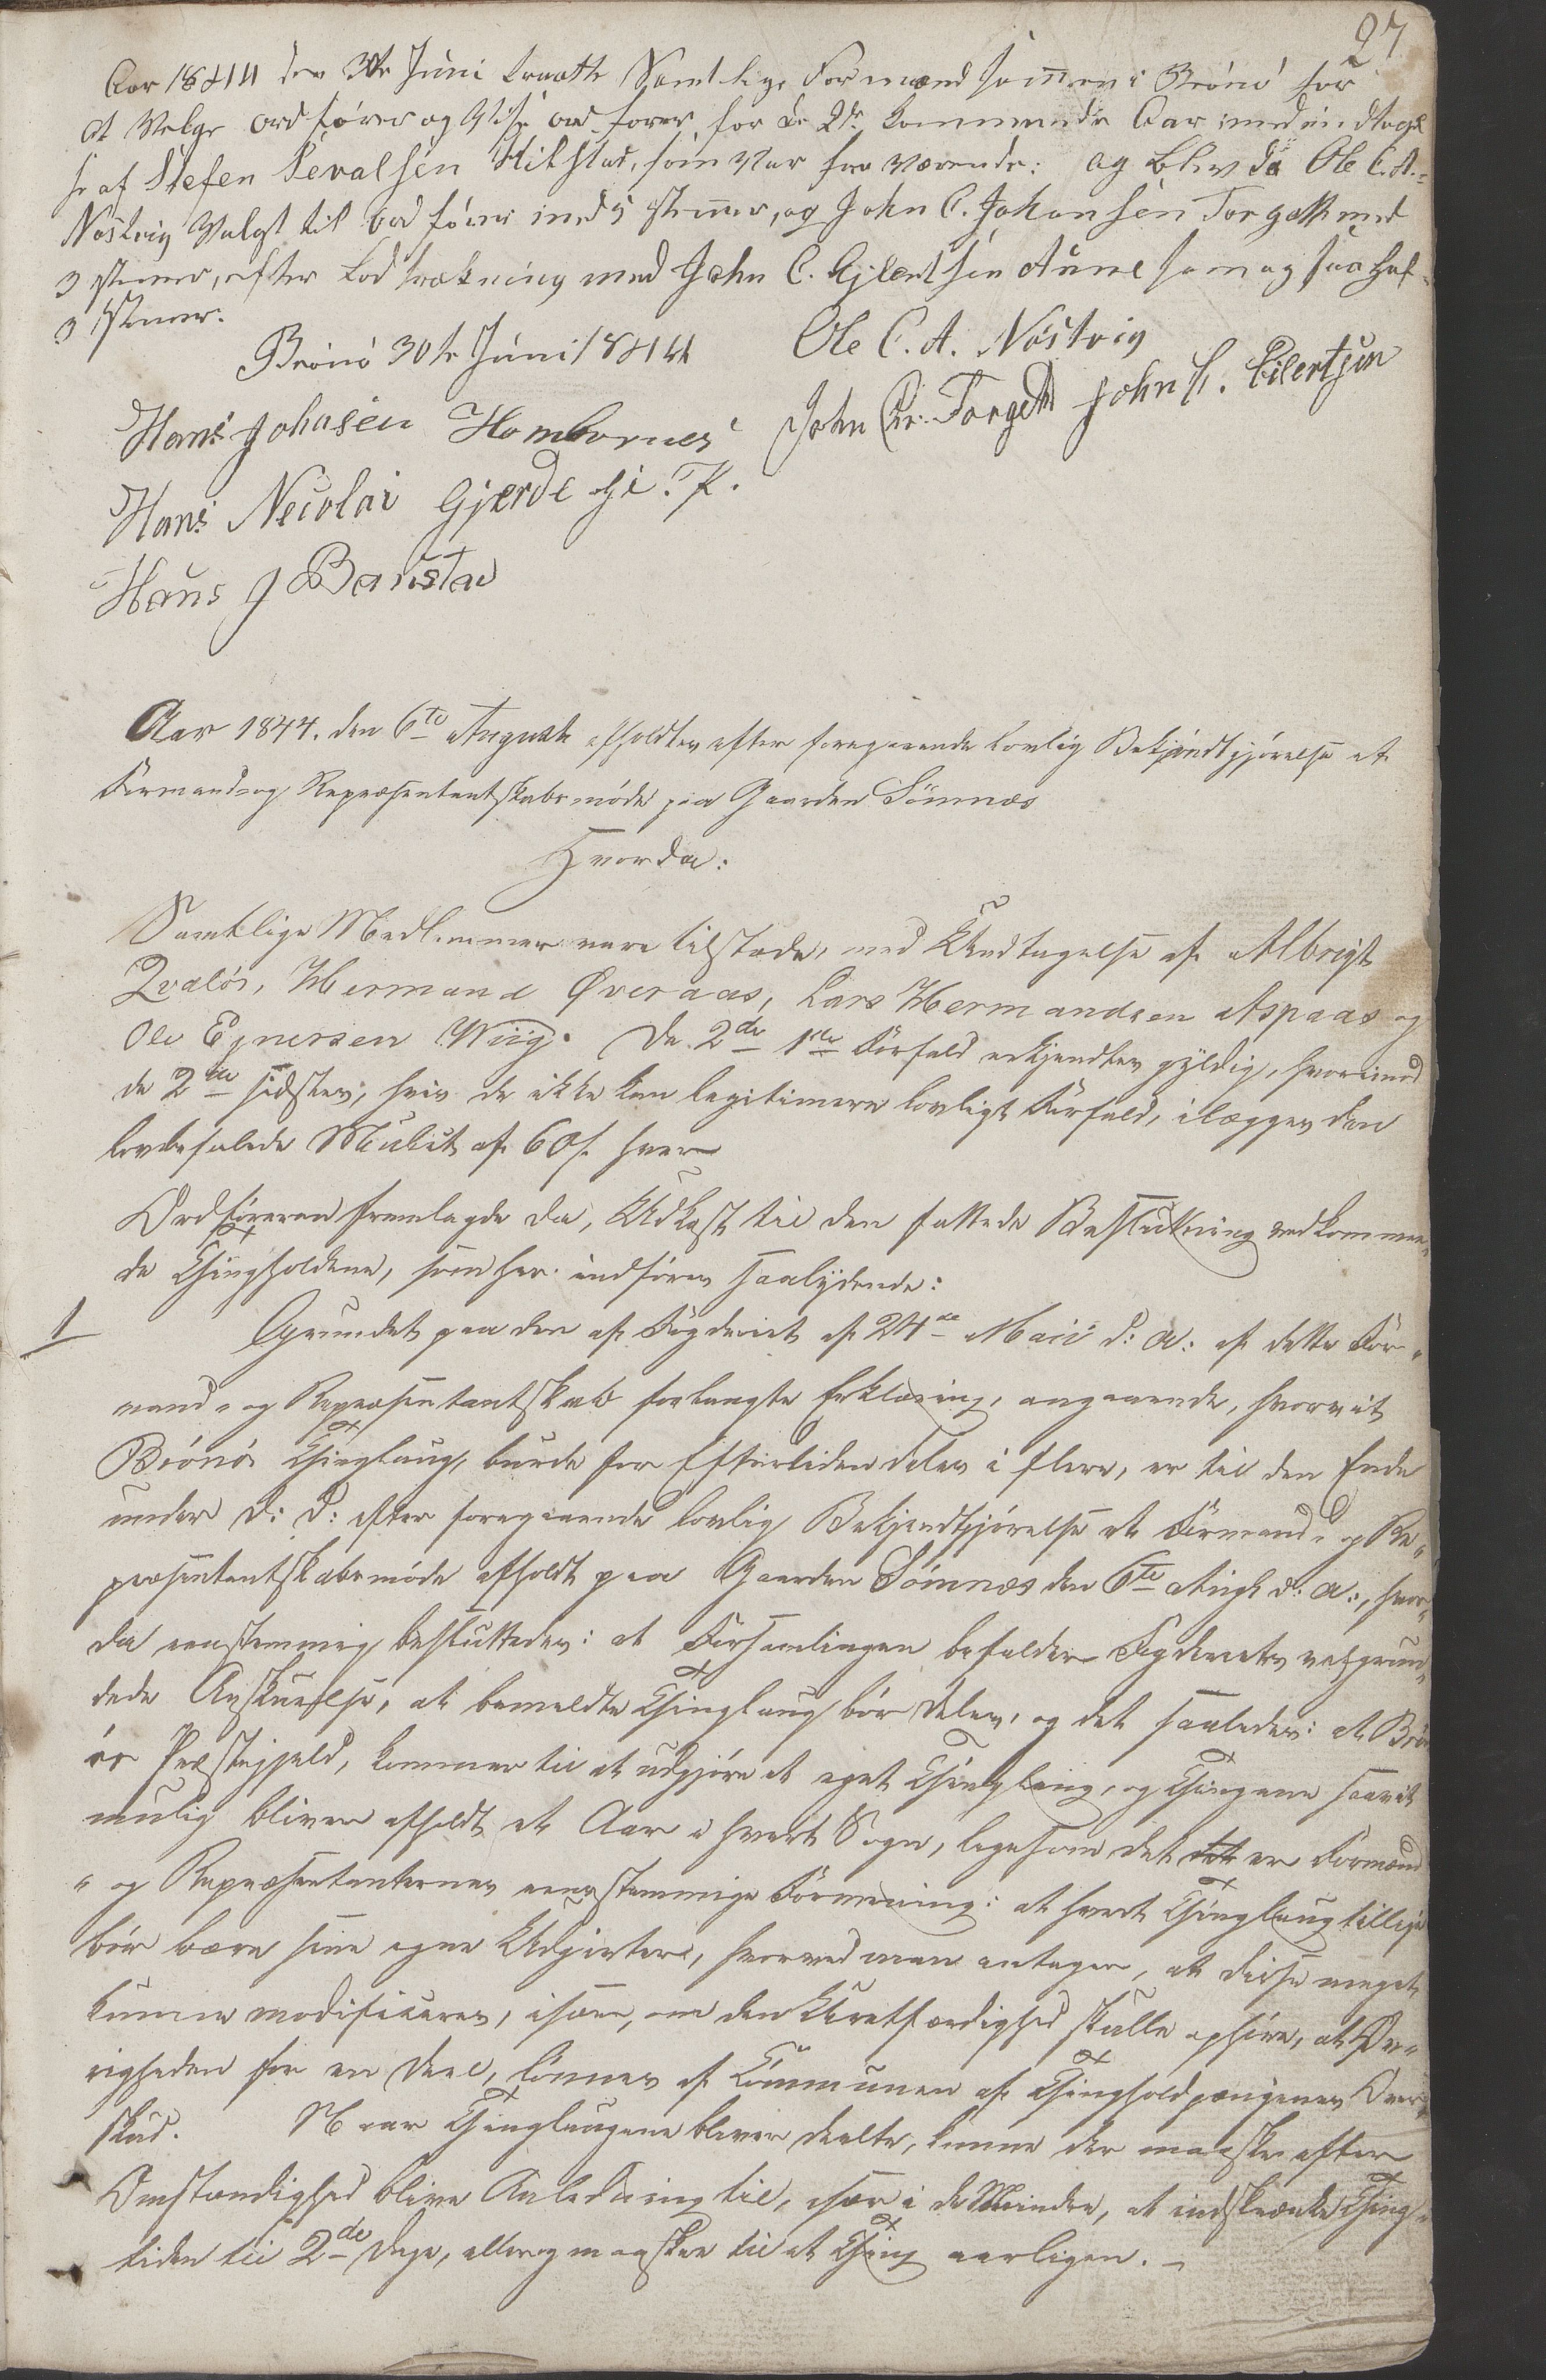 27.
Aar 1844 den 30te Juni traatte Samtlige Formænd sammen i Brönö for
at Velge ordförer og Vise ordförer for de 2de kommende Aar med undtagel
se af Stefen Sevalsen Hilstad, som var fra værende: og blev da Ole C. A.=
Nöstvig Valgt til ordförer med 5 stemer, og John C. Johansen Torgatte med
3 stemer, efter Lodtrækning med John C. Ejlertsen Aune som og saa haf=
3 stemer.
Brönö 30te Juni 1844
Ole C. A. Nöstvig
Hans Johasen Hombornes
John Chr. Torgatt John C. Eilertsen
Hans Necolai Gjerde
Hans J Barista
Aar 1844. den 6te August afholdtes efter foregaaende lovlig Bekjendtgjörelse et
Formands og Repræsentantskabsmöde paa Gaarden Sömnæs
Hvorda:
Samtlige Medlemmer vare tilstede, med Undtagelse af Albrigt
Qvalös, Hermand Øveraas, Lars Hermandsen Aspaas og
Ole Ejnersen Wiig. De 2de 1ste Forfald erkjendtes gyldig, hvorimod
de 2de sidstes, hvis de ikke kan legitimere lovligt Forfald, ilægges den
lovbefalede Mulct af 60 s. hver
Ordföreren fremlagde da, Udkast til den fattede Beslutning vedkommen„
de Thingholdene, som her indföres saalydende:
1
Grundet paa den af Fogderiet af 24de Maii d: A: af dette For„
mand„ og Repræsentantskab forlangte Erklæring, angaaende, hvorvit
Brönös Thinglaug, burde for Eftertiden deles i flere, er til den Ende
under D: D: efter foregaaende lovlig Bekjendtgjörelse et Formand„ og Re„
præsentantskabsmöde afholdt paa Gaarden Sömnæs den 6te Augt d: A:, hvor„
da eenstemmig besluttedes: at Forsamlingen befalder Fogderiets velgrun„
dede Anskuelse, at bemeldte Thinglaug bör deles, og det saaledes: at Brön
ös Præstegjeld, kommer til at udgjöre et eget Thinglaug, og Thingene saavit
mulig bliver afholdt et Aar i hvert Sogn, ligesom det er Formænd
„ og Repræsentanternes eenstemmige Formening: at hvert Thinglaug tillige
bör bære sine egne Udgivter, hvorved man antager, at disse meget
kunne modificeres, især, om den Uretfærdighed skulle ophöre, at Öv„
righeden for en Deel, lönnes af Communen af Thingholdpengenes Over„
skud. Naar Thinglaugene bliver deelte, kunne der maaskee efter
Omstændighed blive Anledning til, især i de Mindre, at indskrænke Thing„
tiden til 2de Dage, eller og maaskee til et Thing aarligen. –